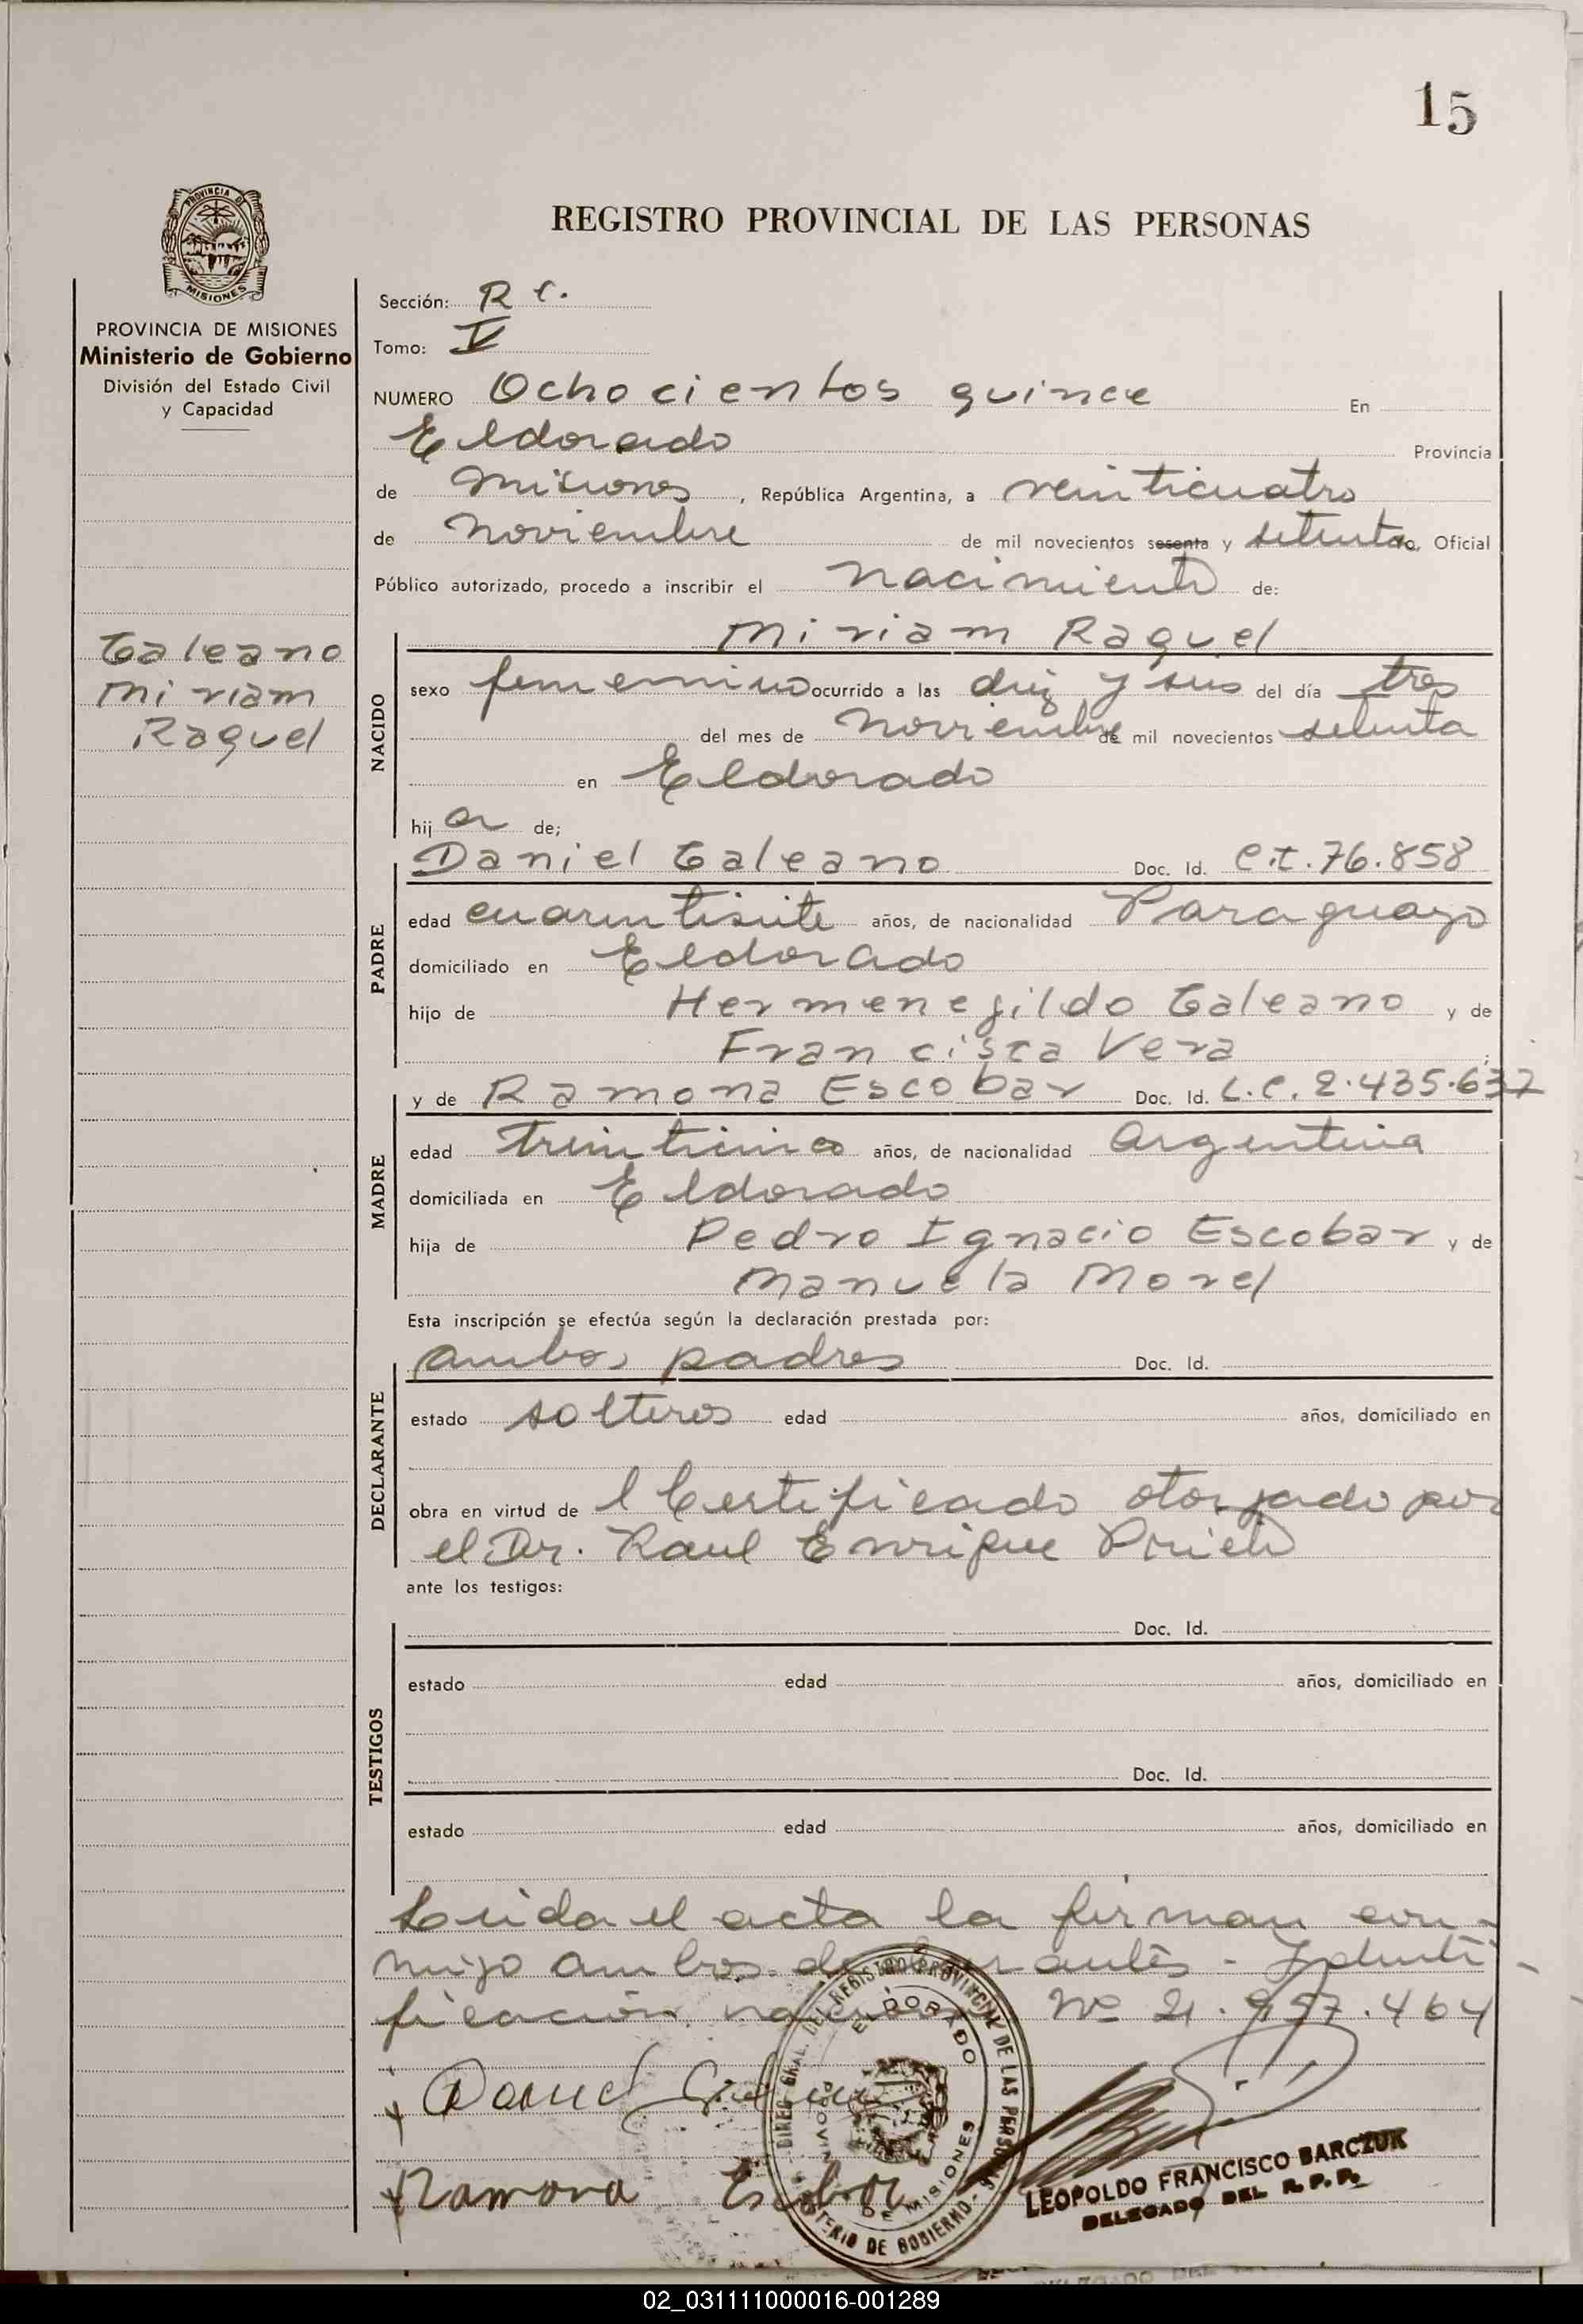 15
PROVINCIA DE
MISIONES
REGISTRO PROVINCIAL DE LAS PERSONAS
PROVINCIA DE MISIONES
Ministerio de Gobierno
División del Estado Civil
y Capacidad
Galeano
Miriam
Raquel
Sección: R C.
Tomo: V
NUMERO Ochocientos quince En
Eldorado Provincia
de Misiones, República Argentina, a veinticuatro
de Noviembre de mil novecientos sesenta y setenta, Oficial
Público autorizado, procedo a inscribir el nacimiento de:
NACIDO
Miriam Raquel
sexo femenino ocurrido a las diez y seis del día tres
del mes de Noviembre de mil novecientos setenta
en Eldorado
hija de;
PADRE
Daniel Galeano Doc. Id. C.I. 76.858
edad cuarentisiete años, de nacionalidad Paraguayo
domiciliado en Eldorado
hijo de Hermenegildo Galeano y de
Francisca Vera
MADRE
y de Ramona Escobar Doc. Id. L.C. 2.435.632
edad treinticinco años, de nacionalidad Argentina
domiciliada en Eldorado
hija de Pedro Ignacio Escobar y de
Manuela Morel
Esta inscripción se efectúa según la declaración prestada por:
DECLARANTE
ambos padres Doc. Id.
estado solteros edad años, domiciliado en
obra en virtud del Certificado otorgado por
el Dr. Raul Enrique Prieto
ante los testigos:
TESTIGOS
Doc. Id.
estado edad años, domiciliado en
Doc. Id.
estado edad años, domiciliado en
Leida el acta la firman con-
migo ambos declarantes - Identi-
ficación Nº 21.957.464
Daniel Galeano
Ramona Escobar
DIREC. GRAL. DEL REGISTRO PROVINCIAL DE LAS PERSONAS - MINISTERIO DE GOBIERNO
ELDORADO
PROVINCIA DE MISIONES
LEOPOLDO FRANCISCO BARCZUK
DELEGADO DEL R. P. P.
02_031111000016-001289